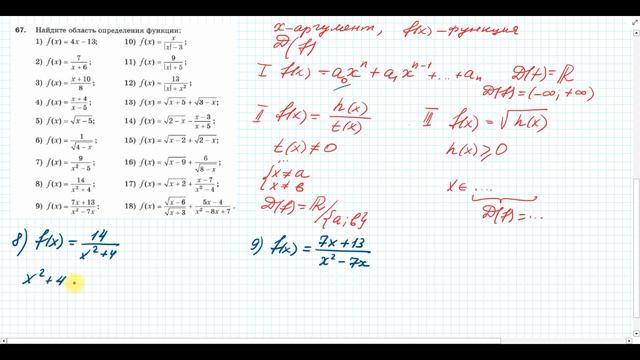 67. Найдите область определения функции:
1) f(x) = 4x – 13;
2) f(x) = 7/(x + 6);
3) f(x) = (x + 10)/8;
4) f(x) = (x + 4)/(x – 6);
5) f(x) = √(x – 5);
6) f(x) = 1/√(4 – x);
7) f(x) = 9/(x² – 5);
8) f(x) = 14/(x² + 4);
9) f(x) = (7x + 13)/(x² – 7x);
10) f(x) = x/(|x| – 3);
11) f(x) = 9/(|x| + 5);
12) f(x) = 13/(|x| + x²);
13) f(x) = √(x + 5) + √(3 – x);
14) f(x) = √(2 – x) – (x – 3)/(x + 5);
15) f(x) = √(x – 2) + √(2 – x);
16) f(x) = √(x – 9) + 6/√(8 – x);
17) f(x) = √(x + 2) + (x – 7)/(x² – 4);
18) f(x) = √(x – 6)/√(x + 3) + (5x – 4)/(x² – 8x + 7).
x-аргумент, f(x)-функция
D(f)
I f(x) = a₀xⁿ + a₁xⁿ⁻¹ + ... + aₙ D(f) = ℝ
D(f) = (-∞, +∞)
II f(x) = h(x)/t(x)
t(x) ≠ 0
...
{x ≠ a
{x ≠ b
D(f) = ℝ/{a; b}
III f(x) = √h(x)
h(x) ≥ 0
x ∈ ....
D(f) = ...
8) f(x) = 14/(x² + 4)
x² + 4
9) f(x) = (7x + 13)/(x² – 7x)